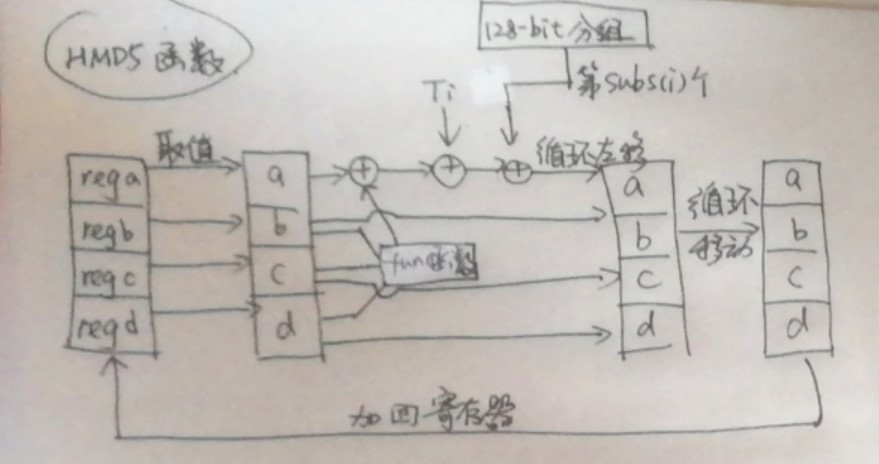 HMD5 函数
128-bit 分组
第subs(i)个
Ti
取值
循环左移
rega
regb
regc
regd
a
b
c
d
fun函数
a
b
c
d
循环
移动
a
b
c
d
加回寄存器